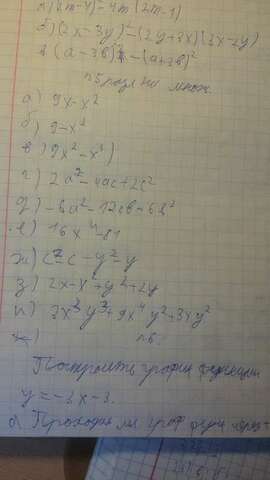 (2m-4)-4m(2m-1)
б) (2x-3y)²-(2y+3x)(3x-2y)
в (a-3b)²-(a+3b)²
а) 9x-x²
б) 9-x²
в) 9x²-x³)
г) 2a²-4ac+2c²
д) -6a²-12ab+6b²
е) 16x⁴-81
ж) c²-c-y²-y
з) 2x-x²+y²+2y
и) 3x³y³+9x⁴y²+3xy²
Построить график функции
y=-3x-3.
Проходит ли граф функ через